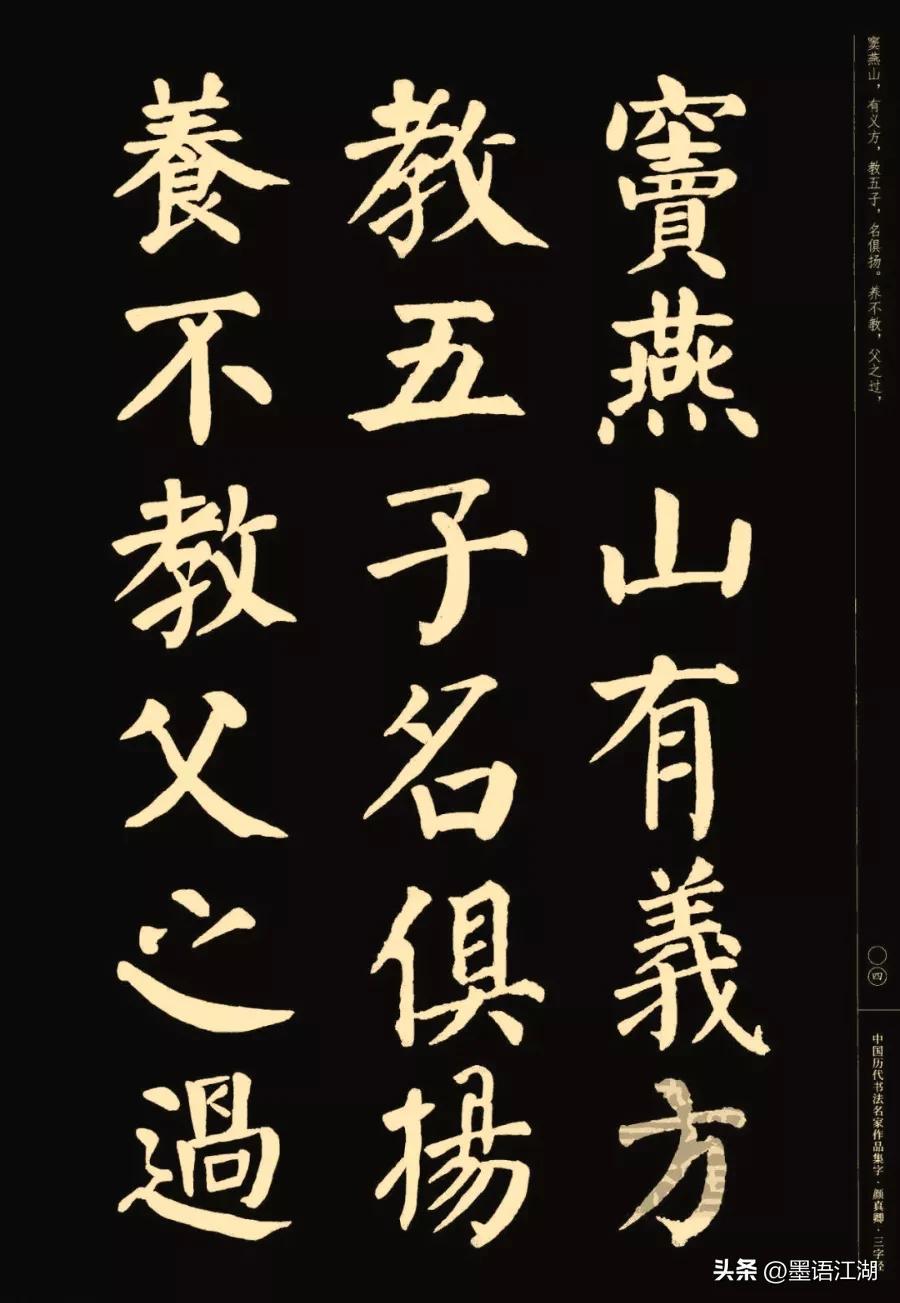 窦燕山，有义方，教五子，名俱扬。养不教，父之过，
竇燕山有義方
教五子名俱揚
養不教父之過
〇四
中国历代书法名家作品集字·颜真卿·三字经
头条 @墨语江湖